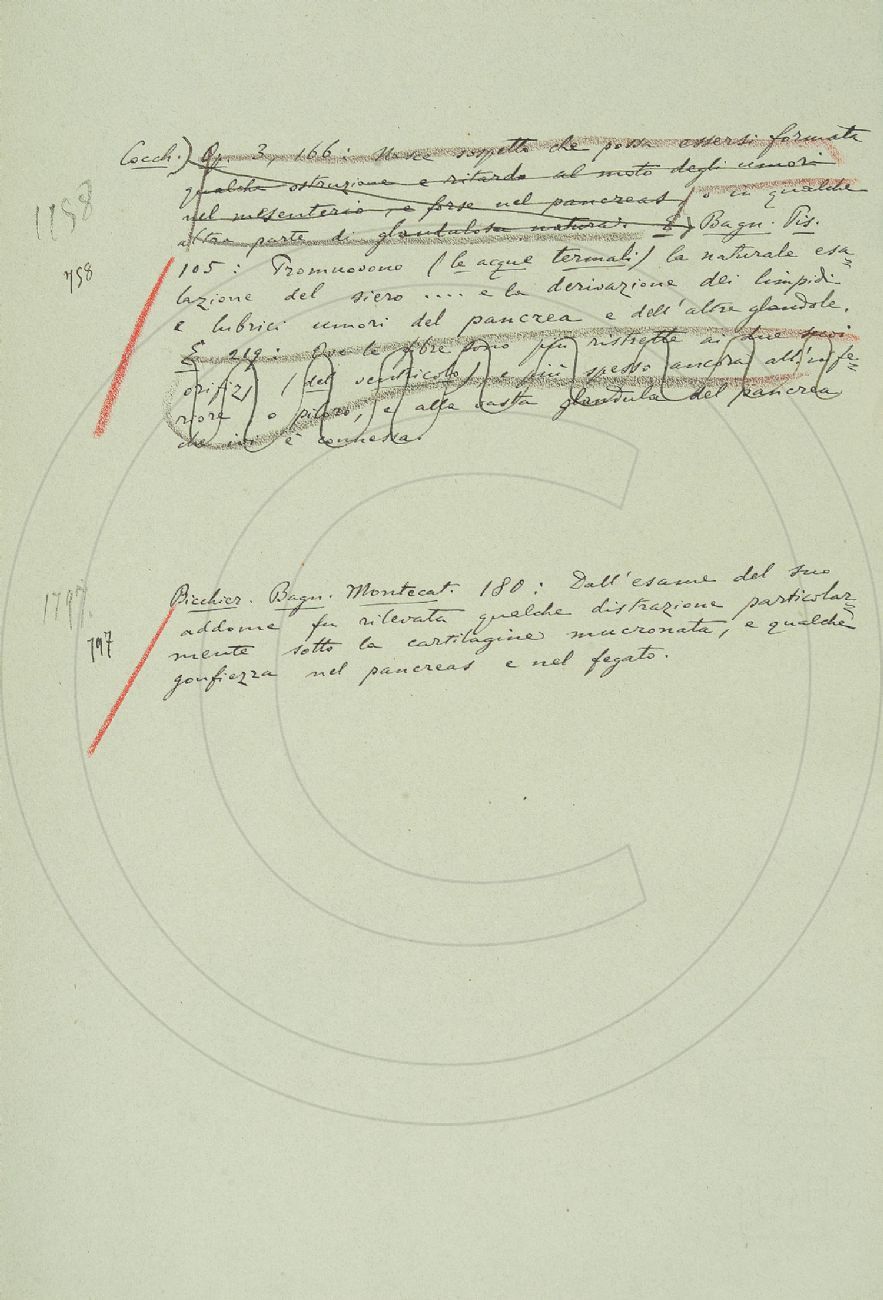 Cocch.) Op. 3, 166: Nasce sospetto che possa essersi formata
qualche ostruzione e ritardo al moto degli umori
nel mesenterio, e forse nel pancreas, o in qualche
altra parte di glandulosa natura. E Bagn. Pis.
1758
758
105: Promuovono (le acque termali) la naturale esa=
lazione del siero .... e la derivazione dei limpidi
e lubrici umori del pancrea e dell'altre glandole.
E 219: Ove le fibre sono più ristrette ai due suoi
orifizj (del ventricolo) e più spesso ancora all'infe=
riore o piloro, e alla vasta glandula del pancrea
che ivi è connessa.
1797.
797
Bicchier. Bagn. Montecat. 180: Dall'esame del suo
addome fu rilevata qualche distrazione particolar=
mente sotto la cartilagine mucronata, e qualche
gonfiezza nel pancreas e nel fegato.